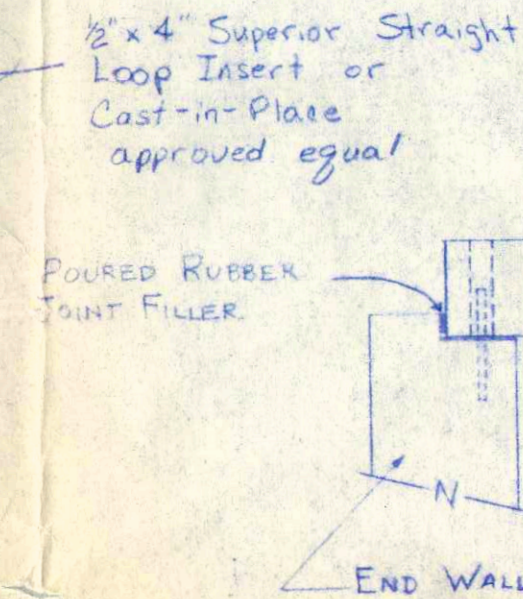 ½" x 4" Superior Straight
Loop Insert or
Cast-in-Place
approved equal
POURED RUBBER
JOINT FILLER
N
END WALL